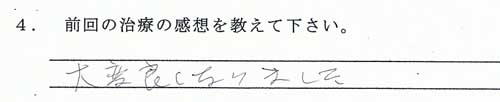 4． 前回の治療の感想を教えて下さい。
大変良くなりました